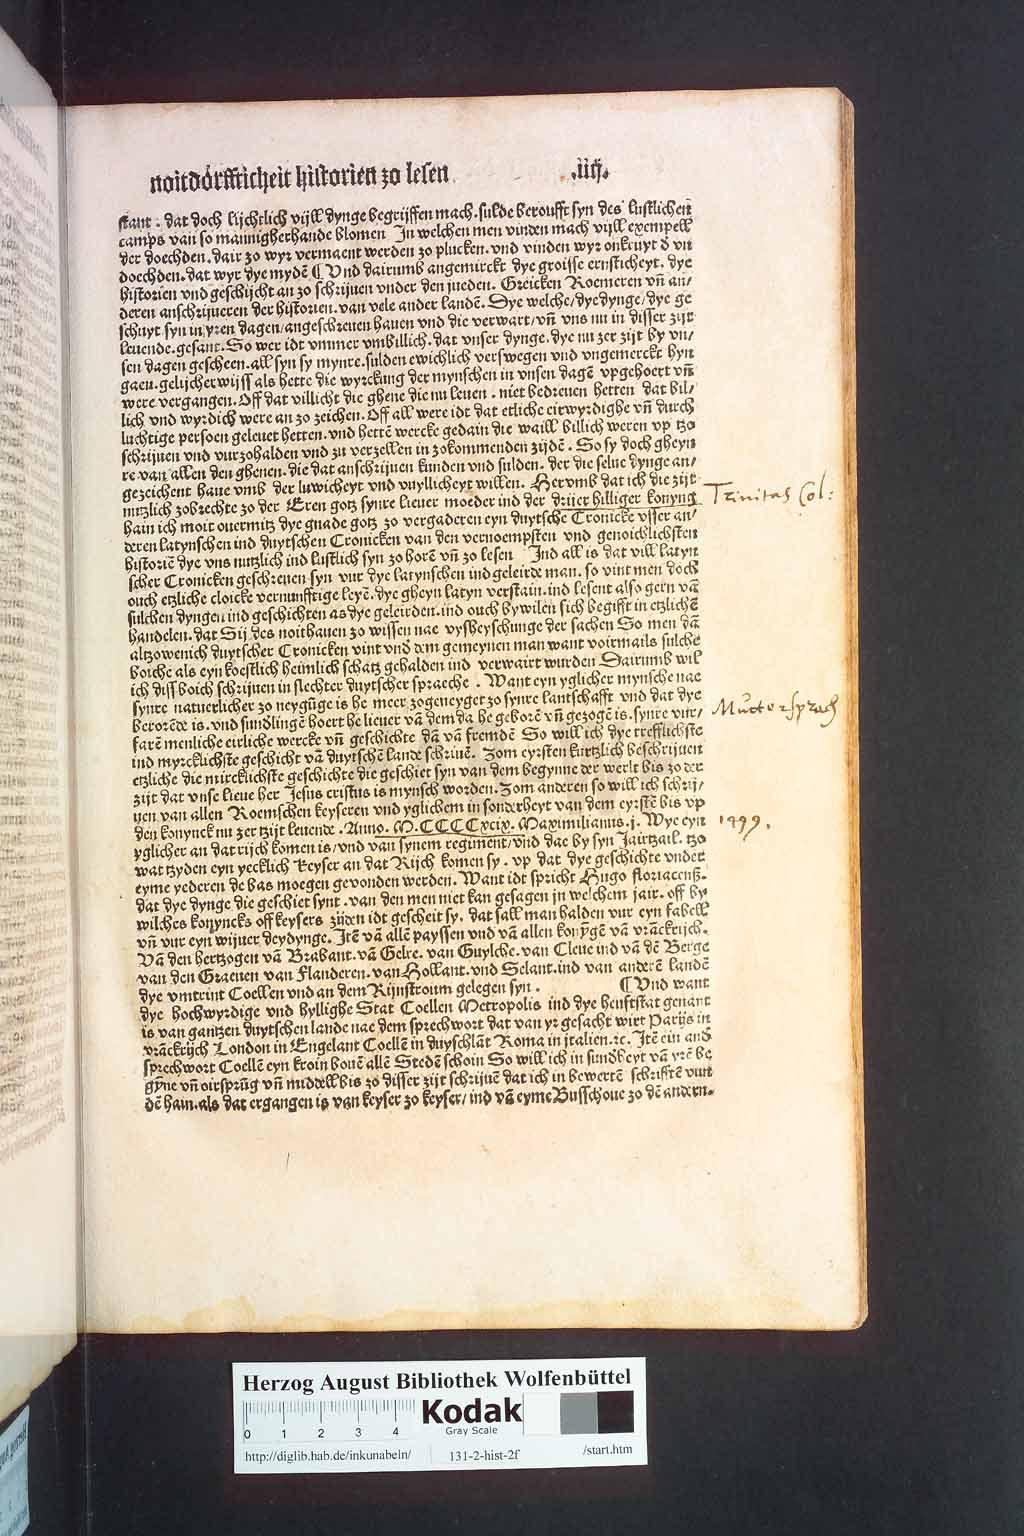 noitdorfficheit historien zo lesen .iiij.
stant: dat doch lijchtlich vijll dynge begrijffen mach. sulde beroufft syn des lustlichen
camps van so mannigherhande blomen In welchen men vinden mach vijll exempell
der doechden. dair zo wyr vermaent werden zo plucken. vnd vinden wyr onkruyt d vn
doechden. dat wyr dye mydē ¶ Vnd dairumb angemirckt dye groisse ernsticheyt. dye
historien vnd geschijcht an zo schrijuen vnder den jueden. Greicken Roemeren vñ an/
deren anschrijueren der historien. van vele ander landē. Dye welche/dye dynge/dye ge
schuyt syn in yren dagen/angeschreuen hauen vnd die verwart/vñ vns nu in disser zijt
leuende. gesant. So wer idt vmmer vmbillich. dat vnser dynge. dye nu zer zijt by vn/
sen dagen gescheen. all syn sy mynre. sulden ewichlich verswegen vnd vngemerckt hyn
gaen. gelijcherwijss als hette die wyrckung der mynschen in vnsen dagē vpgehoert vñ
were vergangen. Off dat villicht die ghene die nu leuen. niet bedreuen hetten dat bil/
lich vnd wyrdich were an zo zeichen. Off all were idt dat etliche eirwyrdighe vñ durch
luchtige persoen geleuet hetten. vnd hettē wercke gedain die waill billich weren vp tzo
schrijuen vnd vurzohalden vnd zu verzellen in zokommenden zijdē. So sy doch gheyn
re van allen den ghenen. die dat anschrijuen kunden vnd sulden. der die selue dynge an/
gezeichent haue vmb der luwicheyt vnd vuyllicheyt willen. Her vmb dat ich die zijt
nutzlich zobrechte zo der Eren gotz synre lieuer moeder ind der drijer hilliger konyng
hain ich moit ouermitz dye gnade gotz zo vergaderen eyn duytsche Cronicke vsser an/
deren latynschen ind duytschen Cronicken van den vernoempsten vnd genoichlichsten
historiē dye vns nutzlich ind lustlich syn zo horē vñ zo lesen Ind all is dat vill latyn
scher Cronicken geschreuen syn vur dye latynschen ind geleirde man. so vint men doch
ouch etzliche cloicke vernunfftige leyē. dye gheyn latyn verstain. ind lesent also gern vā
sulchen dyngen ind geschichten as dye geleirden. ind ouch bywilen sich begifft in etzlichē
handelen. dat Sij des noit hauen zo wissen nae vysheyschunge der sachen So men dā
altzo wenich duytscher Cronicken vint vnd dem gemeynen man want voirmails sulche
boiche als eyn koestlich heimlich schatz gehalden ind verwairt wurden Dairumb wil
ich diss boich schrijuen in slechter duytscher spraeche. Want eyn yglicher mynsche nae
synre natuerlicher zo neygūge is he meer zogeneyget zo synre lantschafft vnd dat dye
berorēde is. vnd sundlingē hoert he lieuer vā dem da he geborē vñ gezogē is. synre vur/
farē menliche eirliche wercke vñ geschichte dā vā fremdē So will ich dye trefflichste
ind myrcklichste geschicht vā duytschē lande schriuē. Zom eyrsten kurtzlich beschrijuen
etzliche die mircklichste geschichte die geschiet syn van dem begynne der werlt bis zo der
zijt dat vnse lieue her Jesus cristus is mynsch worden. Zom anderen so will ich schrij/
uen van allen Roemschen keyseren vnd yglichem in sonderheyt van dem eyrstē bis vp
den konynck nu zer tzijt leuende. Anno. M.CCCCxcix. Maximilianus. j. Wye eyn
yglicher an dat rijch komen is/vnd van synem regiment/vnd dae by syn Jairtzail. tzo
wat tzyden eyn yecklich Keyser an dat Rijch komen sy. vp dat dye geschichte vnder
eyme yederen de bas moegen gevonden werden. Want idt spricht Hugo floriacenß.
dat dye dynge die geschiet synt. van den men niet kan gesagen jn welchem jair. off by
wilches konyncks off keysers zijden idt gescheit sy. dat sall man halden vur eyn fabell
vñ vur eyn wijuer deydynge. Itē vā allē payssen vnd vā allen konỹgē vā vrāckrijch.
Vā den hertzogen vā Brabant. vā Gelre. van Guylche. van Cleue ind vā dē Berge
van den Graeuen van Flanderen. van Hollant. vnd Selant. ind van anderē landē
dye vmtrint Coellen vnd an dem Rijnstroum gelegen syn. ¶ Vnd want
dye hochwyrdige vnd hyllighe Stat Coellen Metropolis ind dye heufftstat genant
is van gantzen duytschen lande nae dem sprechwort dat van yr gesacht wirt Parijs in
vrāckrijch London in Engelant Coellē in duyschlāt Roma in jtalien. ꝛc. Itē ein and
sprechwort Coellē eyn kroin bouē allē Stedē schoin So will ich in sundheyt vā yrē be
gỹne vñ oirsprūg vñ middell bis zo disser zijt schrijuē dat ich in bewertē schrifftē vun
dē hain. als dat ergangen is van keyser zo keyser/ind vā eyme Busschoue zo dē andern.
Trinitas Col:
Muttersprach
1499.
Herzog August Bibliothek Wolfenbüttel
0 1 2 3 4
Kodak
Gray Scale
http://diglib.hab.de/inkunabeln/ 131-2-hist-2f /start.htm